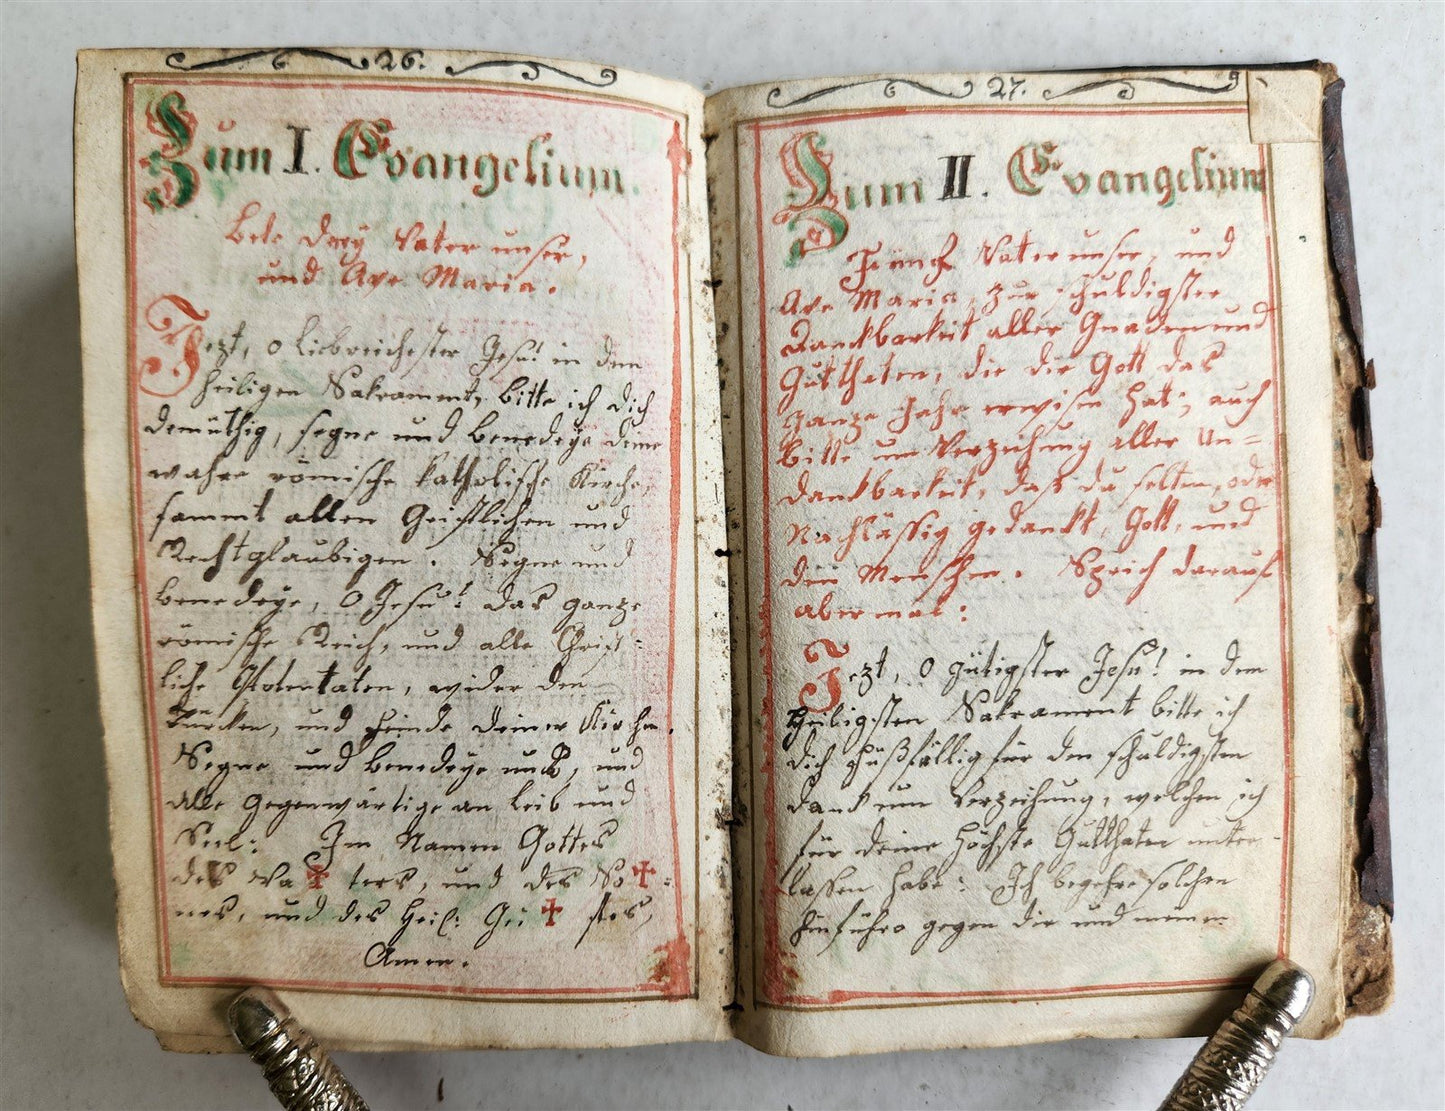 26.
Zum I. Evangelium.
Bete drey Vater unser,
und Ave Maria.
Jezt, o liebreichester Jesu! in dem
heiligen Sakrament, bitte ich dich
demüthig, segne und benedeye deine
wahre römische katholische Kirche,
sammt allen Geistlichen und
Rechtglaubigen. Segne und
benedeye, O Jesu! das ganze
römische Reich, und alle Christ-
liche Potentaten, wider den
Türcken, und Feinde deiner Kirchen.
Segne und benedeye uns, und
alle gegenwärtige an Leib und
Seel: Im Namen Gottes
des Va✝ters, und des So✝:
nes, und des Heil: Gei✝stes,
Amen.
27.
Zum II. Evangelium
Fünf Vater unser, und
Ave Maria, zur schuldigster
Danckbarkeit aller Gnaden und
Gutthaten, die dir Gott das
ganze Jahr erwisen hat; auch
bitte um Verzeihung aller Un=
danckbarkeit, daß du selten, oder
Nachlässig gedankt, Gott, und
den Menschen. Sprich darauf
abermal:
Jezt, O gütigster Jesu! in dem
Heiligsten Sakrament bitte ich
dich fußfällig für den schuldigsten
Danck um Verzeihung, welchen ich
für deine höchste Gutthaten unter-
lassen habe: Ich begehre solchen
hinführo gegen dir und meinen